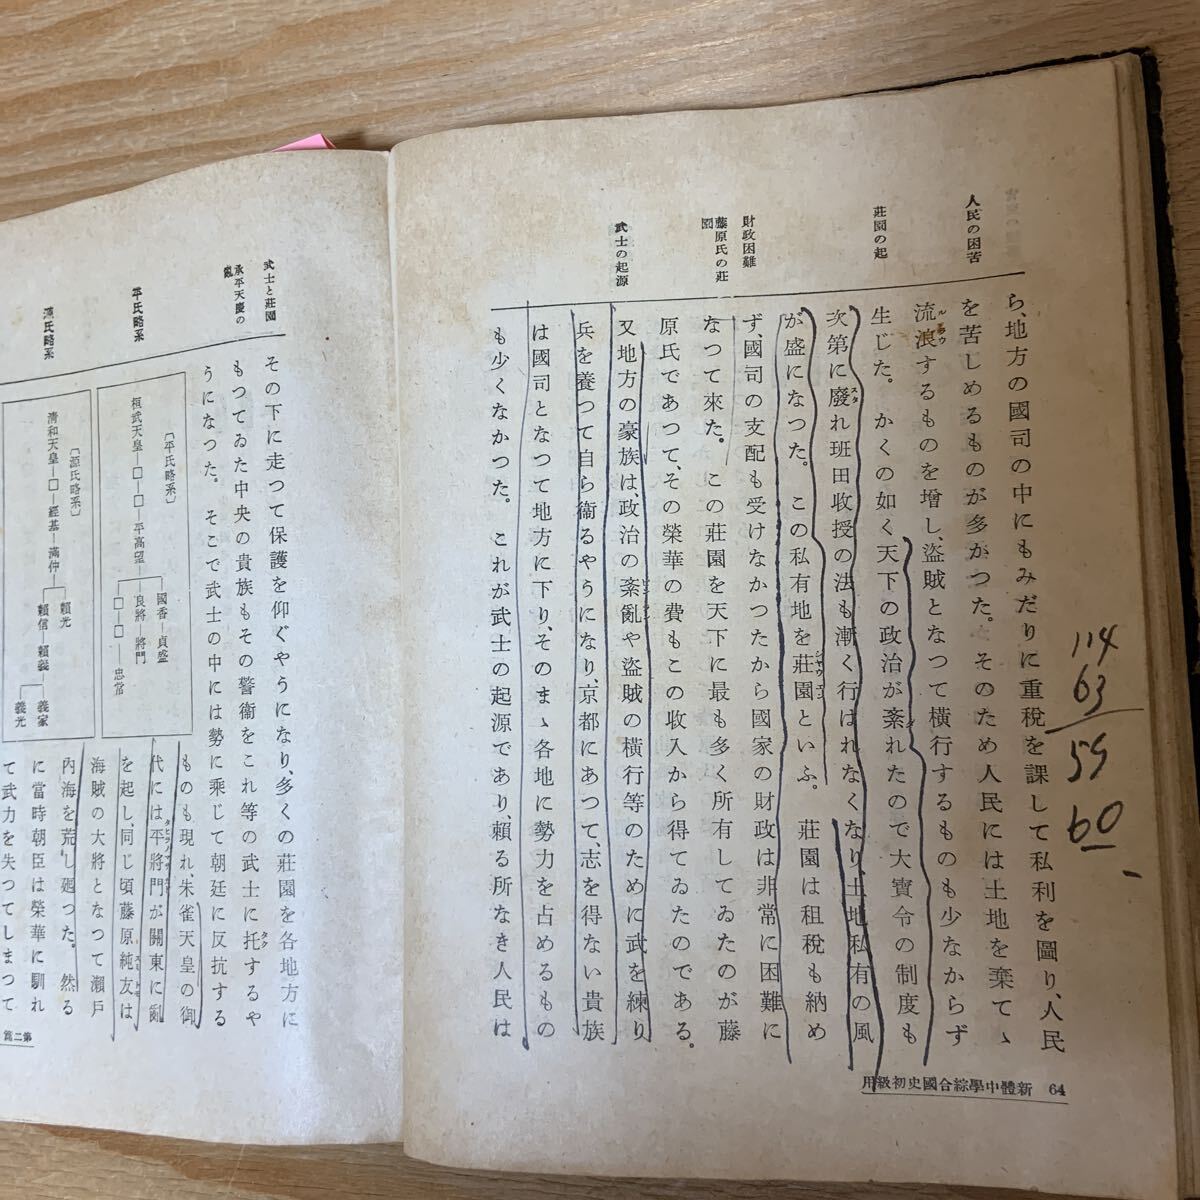 人民の困苦
莊園の起
財政困難
藤原氏の莊
園
武士の起源
ら、地方の國司の中にもみだりに重税を課して私利を圖り、人民
を苦しめるものが多かつた。そのため人民には土地を棄てゝ
流浪するものを増し、盜賊となつて橫行するものも少なからず
生じた。かくの如く天下の政治が紊れたので大寶令の制度も
次第に廢れ班田收授の法も漸く行はれなくなり、土地私有の風
が盛になつた。この私有地を莊園といふ。莊園は租税も納め
ず、國司の支配も受けなかつたから國家の財政は非常に困難に
なつて來た。この莊園を天下に最も多く所有してゐたのが藤
原氏であつて、その榮華の費もこの收入から得てゐたのである。
又地方の豪族は、政治の紊亂や盜賊の橫行等のために武を練り
兵を養つて自ら衞るやうになり、京都にあつて、志を得ない貴族
は國司となつて地方に下り、そのまゝ各地に勢力を占めるもの
も少くなかつた。これが武士の起源であり、賴る所なき人民は
64 新體中學綜合國史初級用
114
63
59
60
武士と莊園
承平天慶の
亂
平氏略系
源氏略系
その下に走つて保護を仰ぐやうになり、多くの莊園を各地方に
もつてゐた中央の貴族もその警衞をこれ等の武士に托するや
うになつた。そこで武士の中には勢に乘じて朝廷に反抗する
〔平氏略系〕
桓武天皇―□―□―平高望
國香―貞盛
良將―將門
□―□―忠常
〔源氏略系〕
淸和天皇―□―經基―滿仲
賴光
賴信―賴義
義家
義光
ものも現れ、朱雀天皇の御
代には平將門が關東に亂
を起し、同じ頃藤原純友は
海賊の大將となつて瀨戶
內海を荒し廻つた。然る
に當時朝臣は榮華に馴れ
て武力を失つてしまつて
第二篇